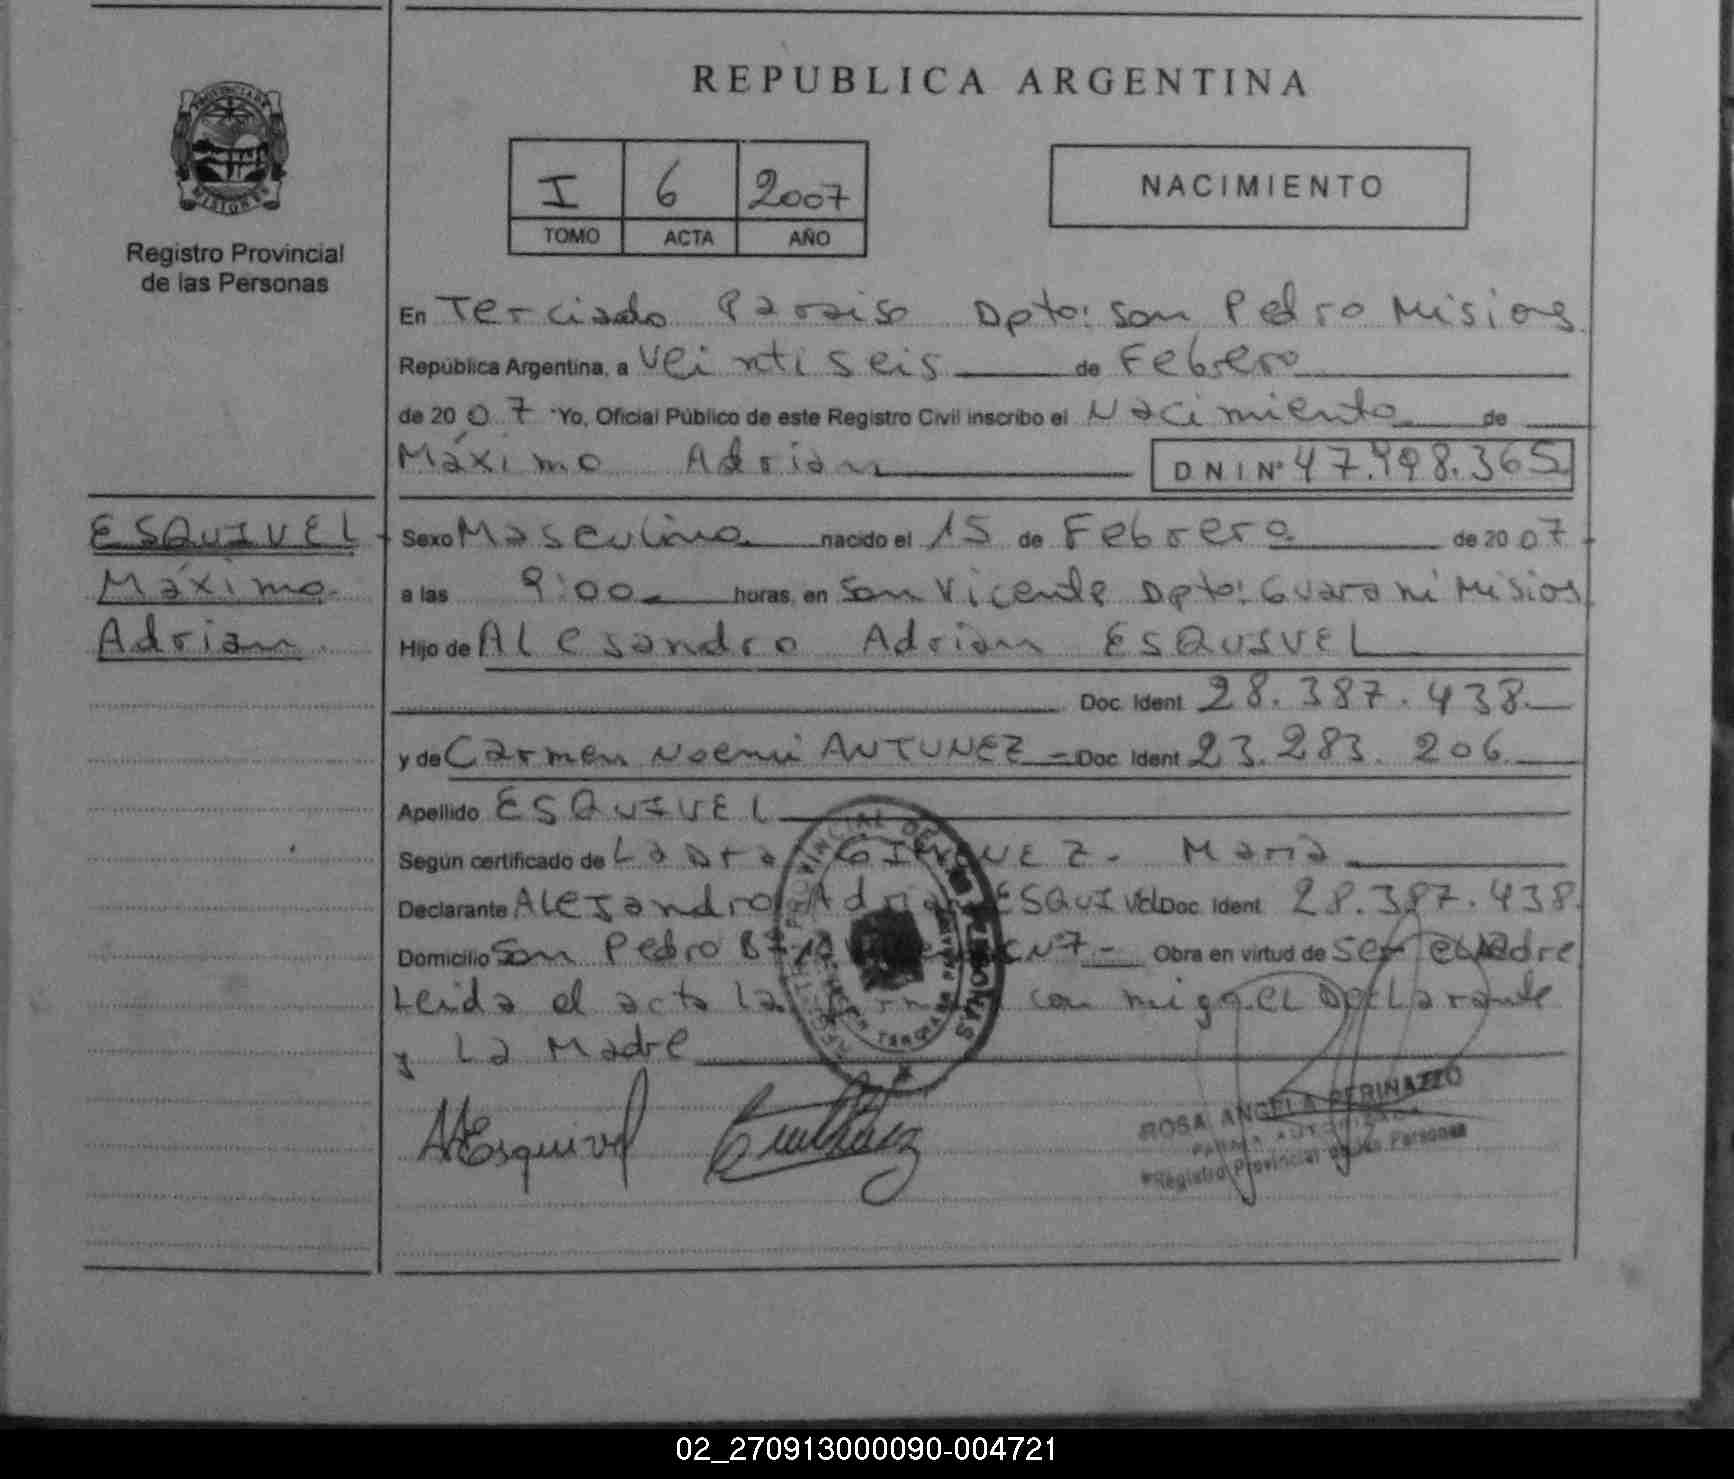 REPUBLICA ARGENTINA
PROVINCIA DE
MISIONES
Registro Provincial
de las Personas
I 6 2007
TOMO ACTA AÑO
NACIMIENTO
En Terciado Paraiso Dpto: San Pedro Misiones
República Argentina, a Veintiseis de Febrero
de 2007 Yo, Oficial Público de este Registro Civil inscribo el Nacimiento de
Máximo Adrian DNI Nº 47.498.365
ESQUIVEL
Máximo
Adrian
Sexo Masculino nacido el 15 de Febrero de 2007
a las 9:00 horas, en San Vicente Dpto: Guarani Misiones
Hijo de Alesandro Adrian ESQUIVEL
Doc. Ident. 28.387.438
y de Carmen Noemi ANTUNEZ Doc. Ident. 23.283.206
Apellido ESQUIVEL
Según certificado de La Dra Maria
Declarante Alejandro Adrian ESQUIVEL Doc. Ident. 28.387.438
Domicilio San Pedro Obra en virtud de ser el Padre
Leida el acta La con migo el Declarante
y La Madre
AEsquivel
ROSA ANGELA PERINAZZO
Registro Provincial de las Personas
02_270913000090-004721